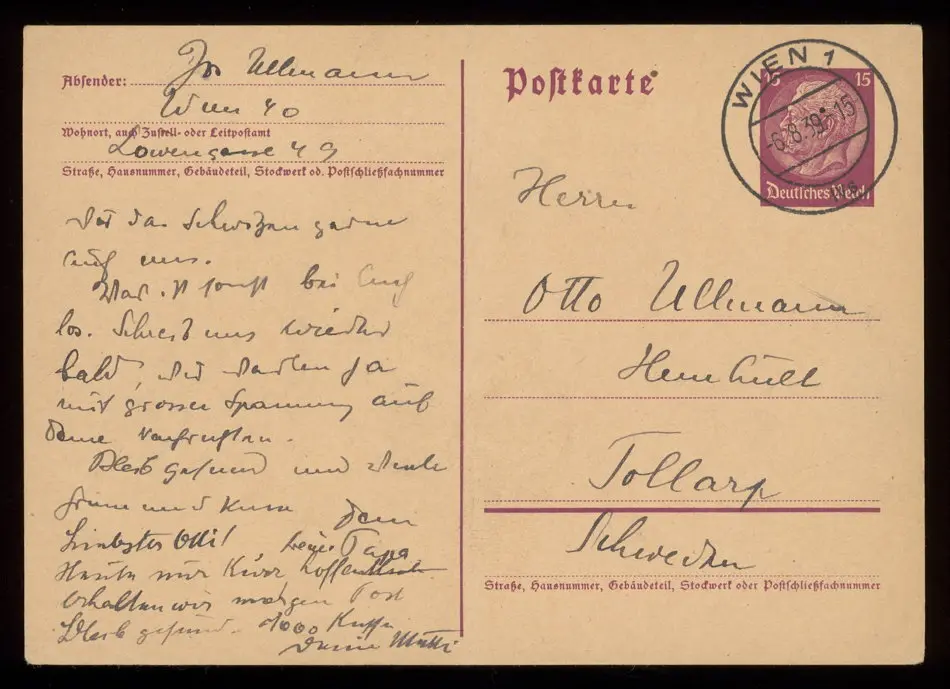 Absender: Jos Ullmann
Wien 40
Wohnort, auch Zustell- oder Leitpostamt
Löwengasse 49
Straße, Hausnummer, Gebäudeteil, Stockwerk od. Postschließfachnummer
auf uns.
sonst bei Euch
los. Schreib uns wieder
bald, wir warten ja
mit grosser Spannung auf
Deine Nachrichten.
Bleib gesund und viele
Grüsse und Küsse Dein
Liebster Otti! Papa
Heute nur kurz hoffentlich
erhalten wir morgen Post
Bleib gesund. 1000 Küsse
Deine Mutti
Postkarte
WIEN 1
-6.8.39 -15
15 15
Deutsches Reich
Herrn
Otto Ullmann
Tollarp
Schweden
Straße, Hausnummer, Gebäudeteil, Stockwerk oder Postschließfachnummer